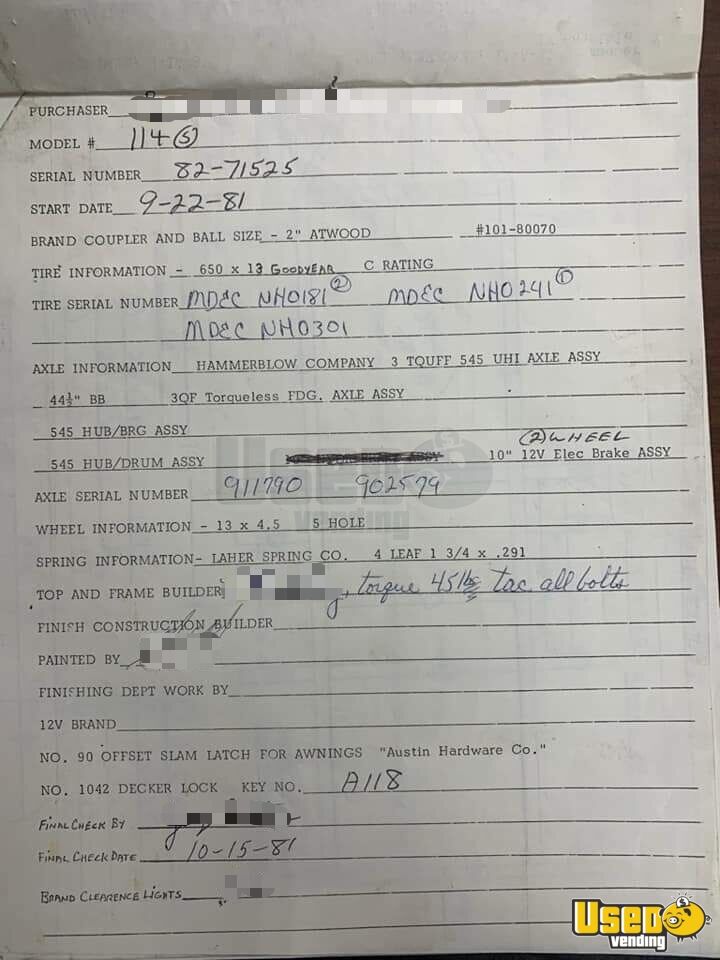 PURCHASER
MODEL # 114(S)
SERIAL NUMBER 82-71525
START DATE 9-22-81
BRAND COUPLER AND BALL SIZE - 2" ATWOOD #101-80070
TIRE INFORMATION - 650 x 13 GOODYEAR C RATING
TIRE SERIAL NUMBER MDEC NH0181 (2) MDEC NH0241 (1)
MDEC NH0301
AXLE INFORMATION HAMMERBLOW COMPANY 3 TQUFF 545 UHI AXLE ASSY
44½" BB 3QF Torqueless FDG. AXLE ASSY
545 HUB/BRG ASSY
(2) WHEEL
545 HUB/DRUM ASSY 10" 12V Elec Brake ASSY
AXLE SERIAL NUMBER 911790 902579
WHEEL INFORMATION - 13 x 4.5 5 HOLE
SPRING INFORMATION- LAHER SPRING CO. 4 LEAF 1 3/4 x .291
TOP AND FRAME BUILDER , torque 45 lbs tac all bolts
FINISH CONSTRUCTION BUILDER
PAINTED BY
FINISHING DEPT WORK BY
12V BRAND
NO. 90 OFFSET SLAM LATCH FOR AWNINGS "Austin Hardware Co."
NO. 1042 DECKER LOCK KEY NO. A118
FINAL CHECK BY
FINAL CHECK DATE 10-15-81
BRAND CLEARENCE LIGHTS
Used vending
Used vending